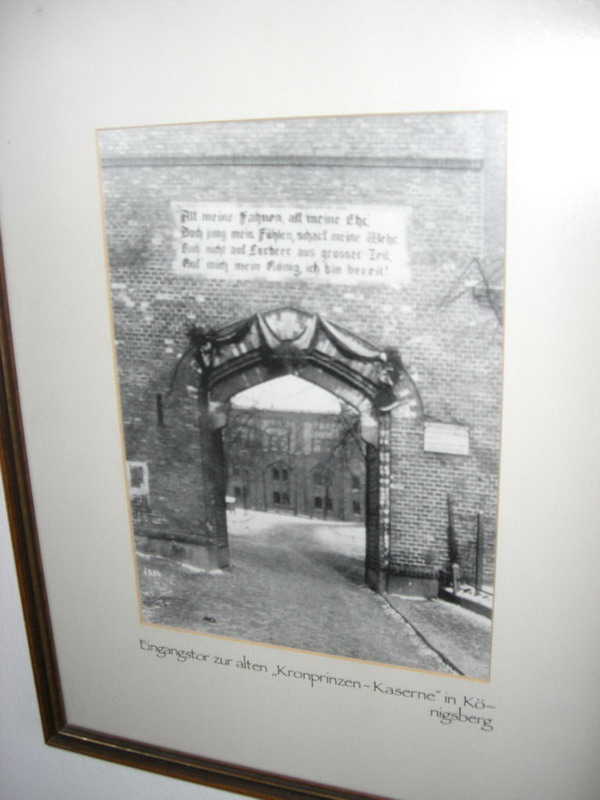 Alt meine Fahnen, alt meine Ehr,
Doch jung mein Fühlen, scharf meine Wehr.
Ruh nicht auf Lorbeer aus grosser Zeit,
Ruf mich mein König, ich bin bereit!
6504
Eingangstor zur alten „Kronprinzen-Kaserne" in Kö-
nigsberg